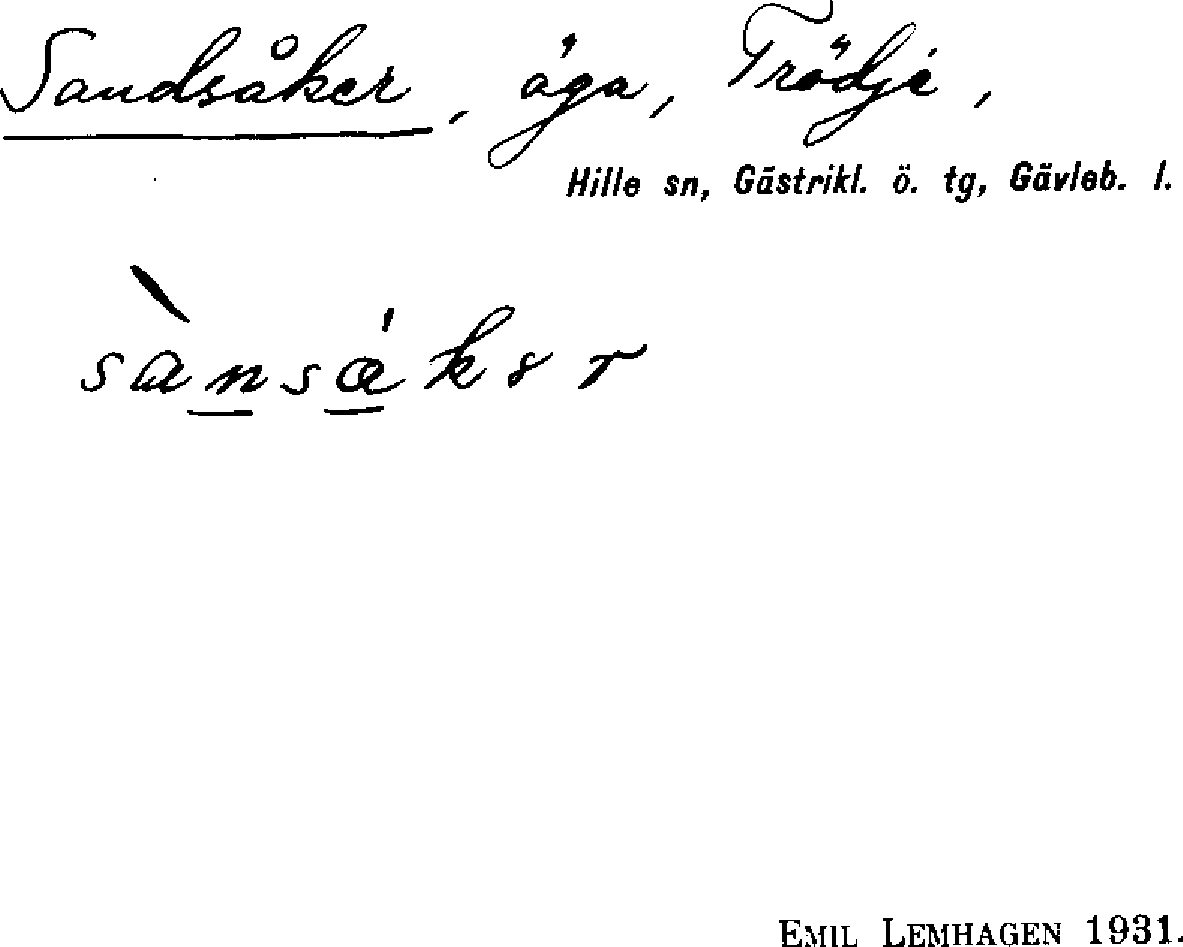 Sandsåker, äga, Trödje,
Hille sn, Gästrikl. ö. tg, Gävleb. l.
EMIL LEMHAGEN 1931.